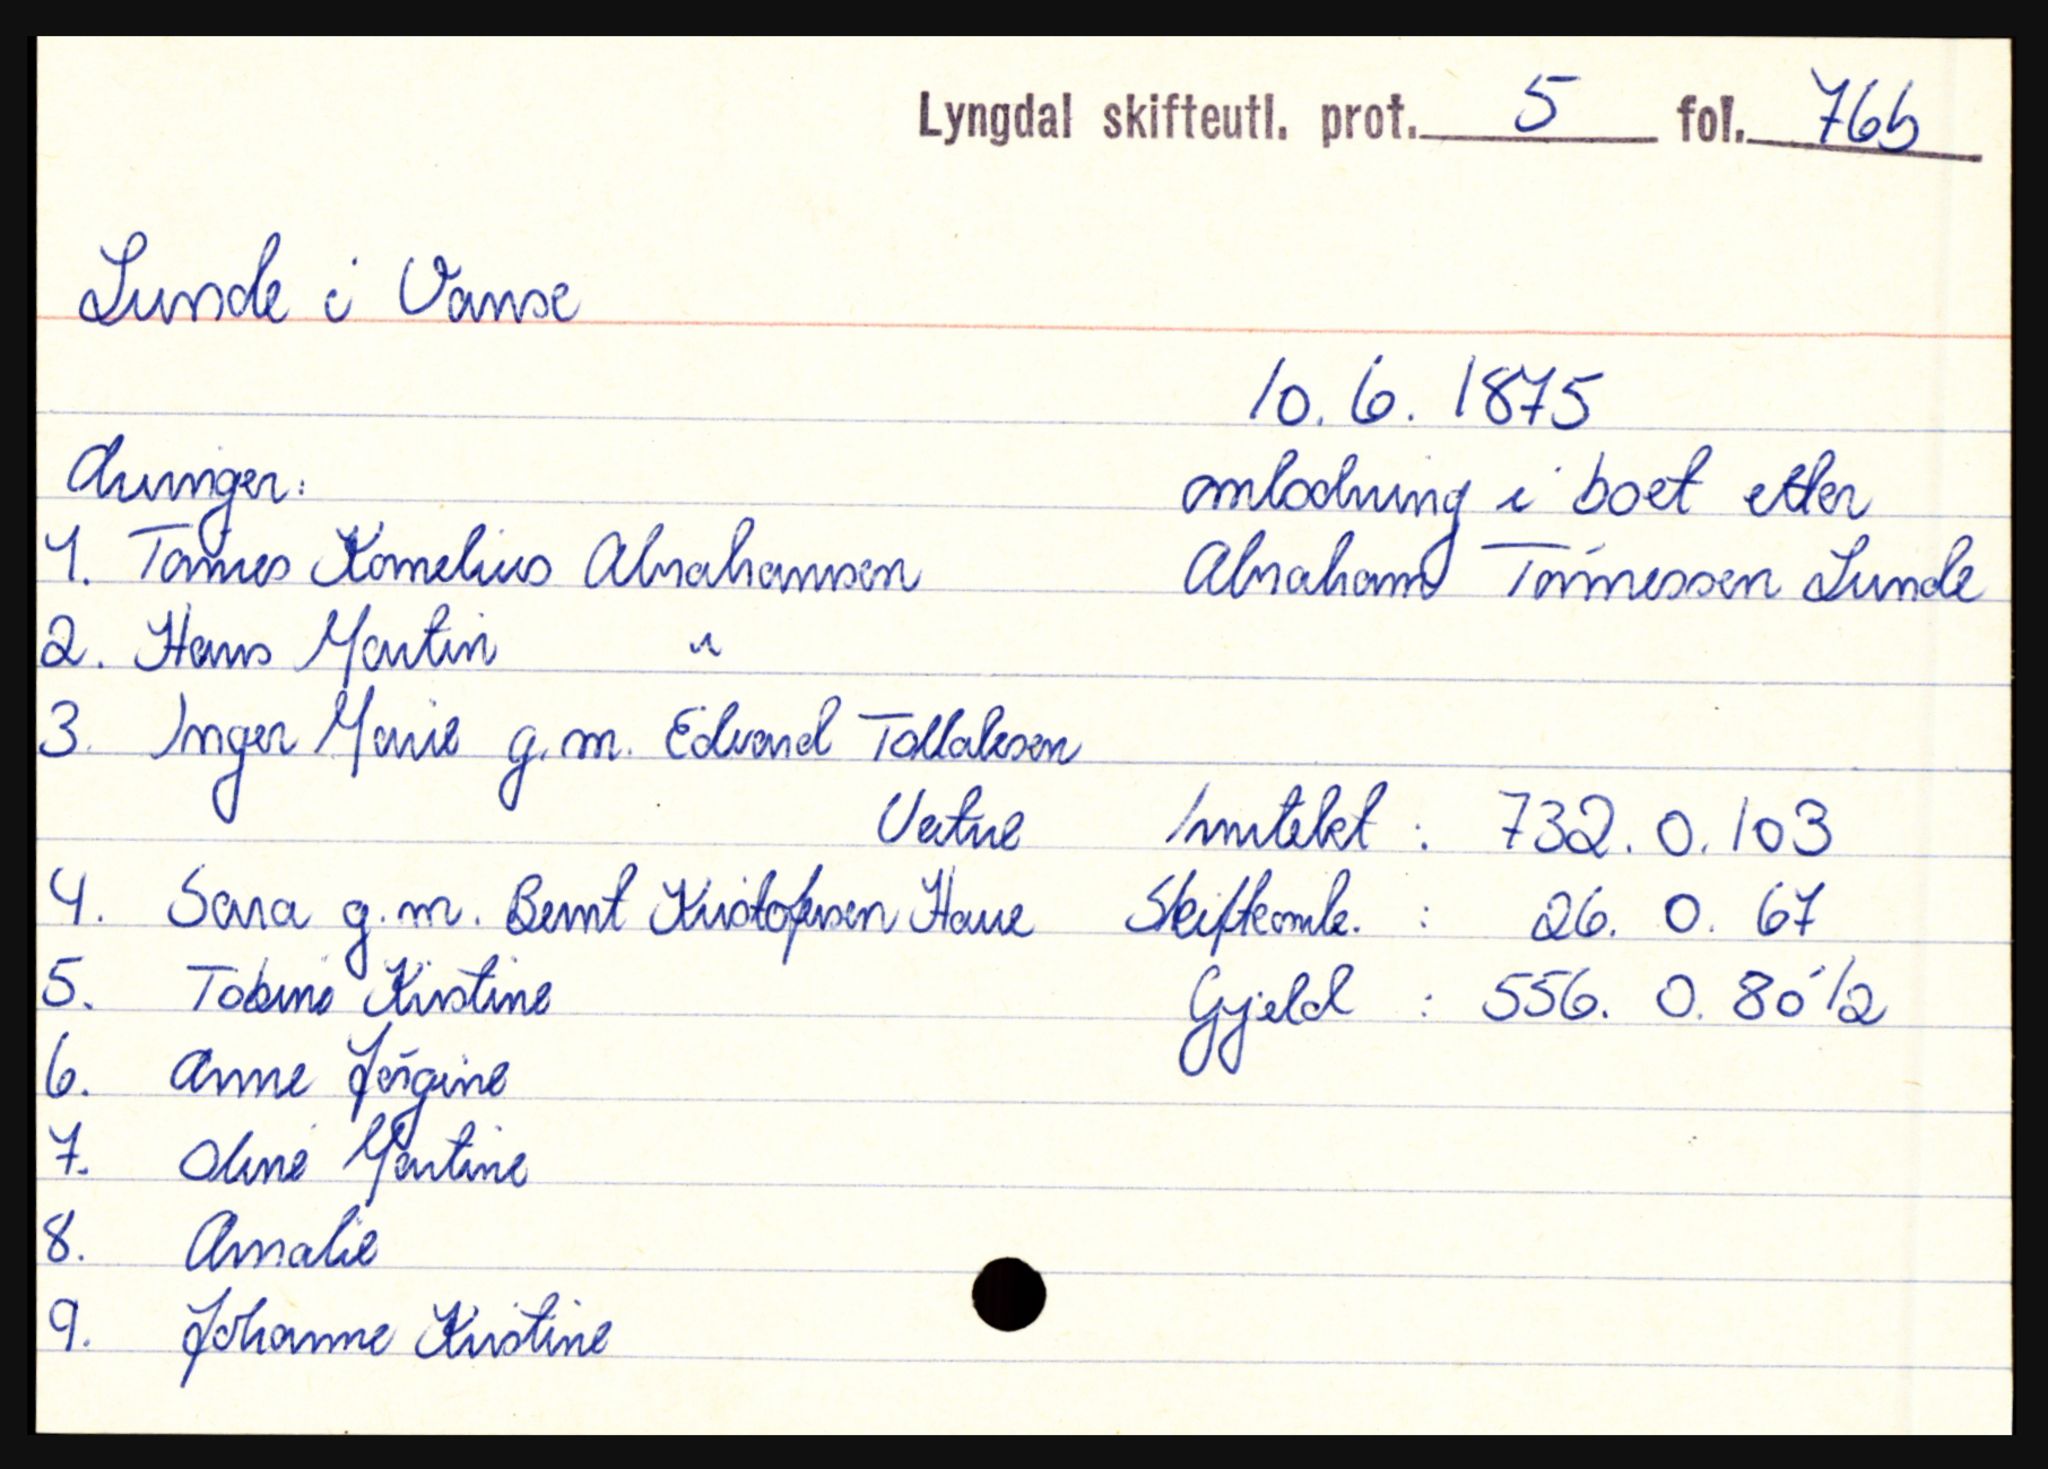 Lyngdal skifteutl. prot. 5 fol. 76b
Lunde i Vanse
10.6.1875
Arvinger:
omlodning i boet etter
Abraham Tönnessen Lunde
1. Tönnes Kornelius Abrahamsen
2. Hans Martin "
3. Inger Marie g.m. Edvard Tollaksen
Vatne
4. Sara g.m. Bernt Kristofersen Haue
5. Tobine Kirstine
6. Anne Jörgine
7. Oline Martine
8. Amalie
9. Johanne Kristine
Inntekt : 732.0.103
Skifteomk. : 26.0.67
Gjeld : 556.0.80 1/2